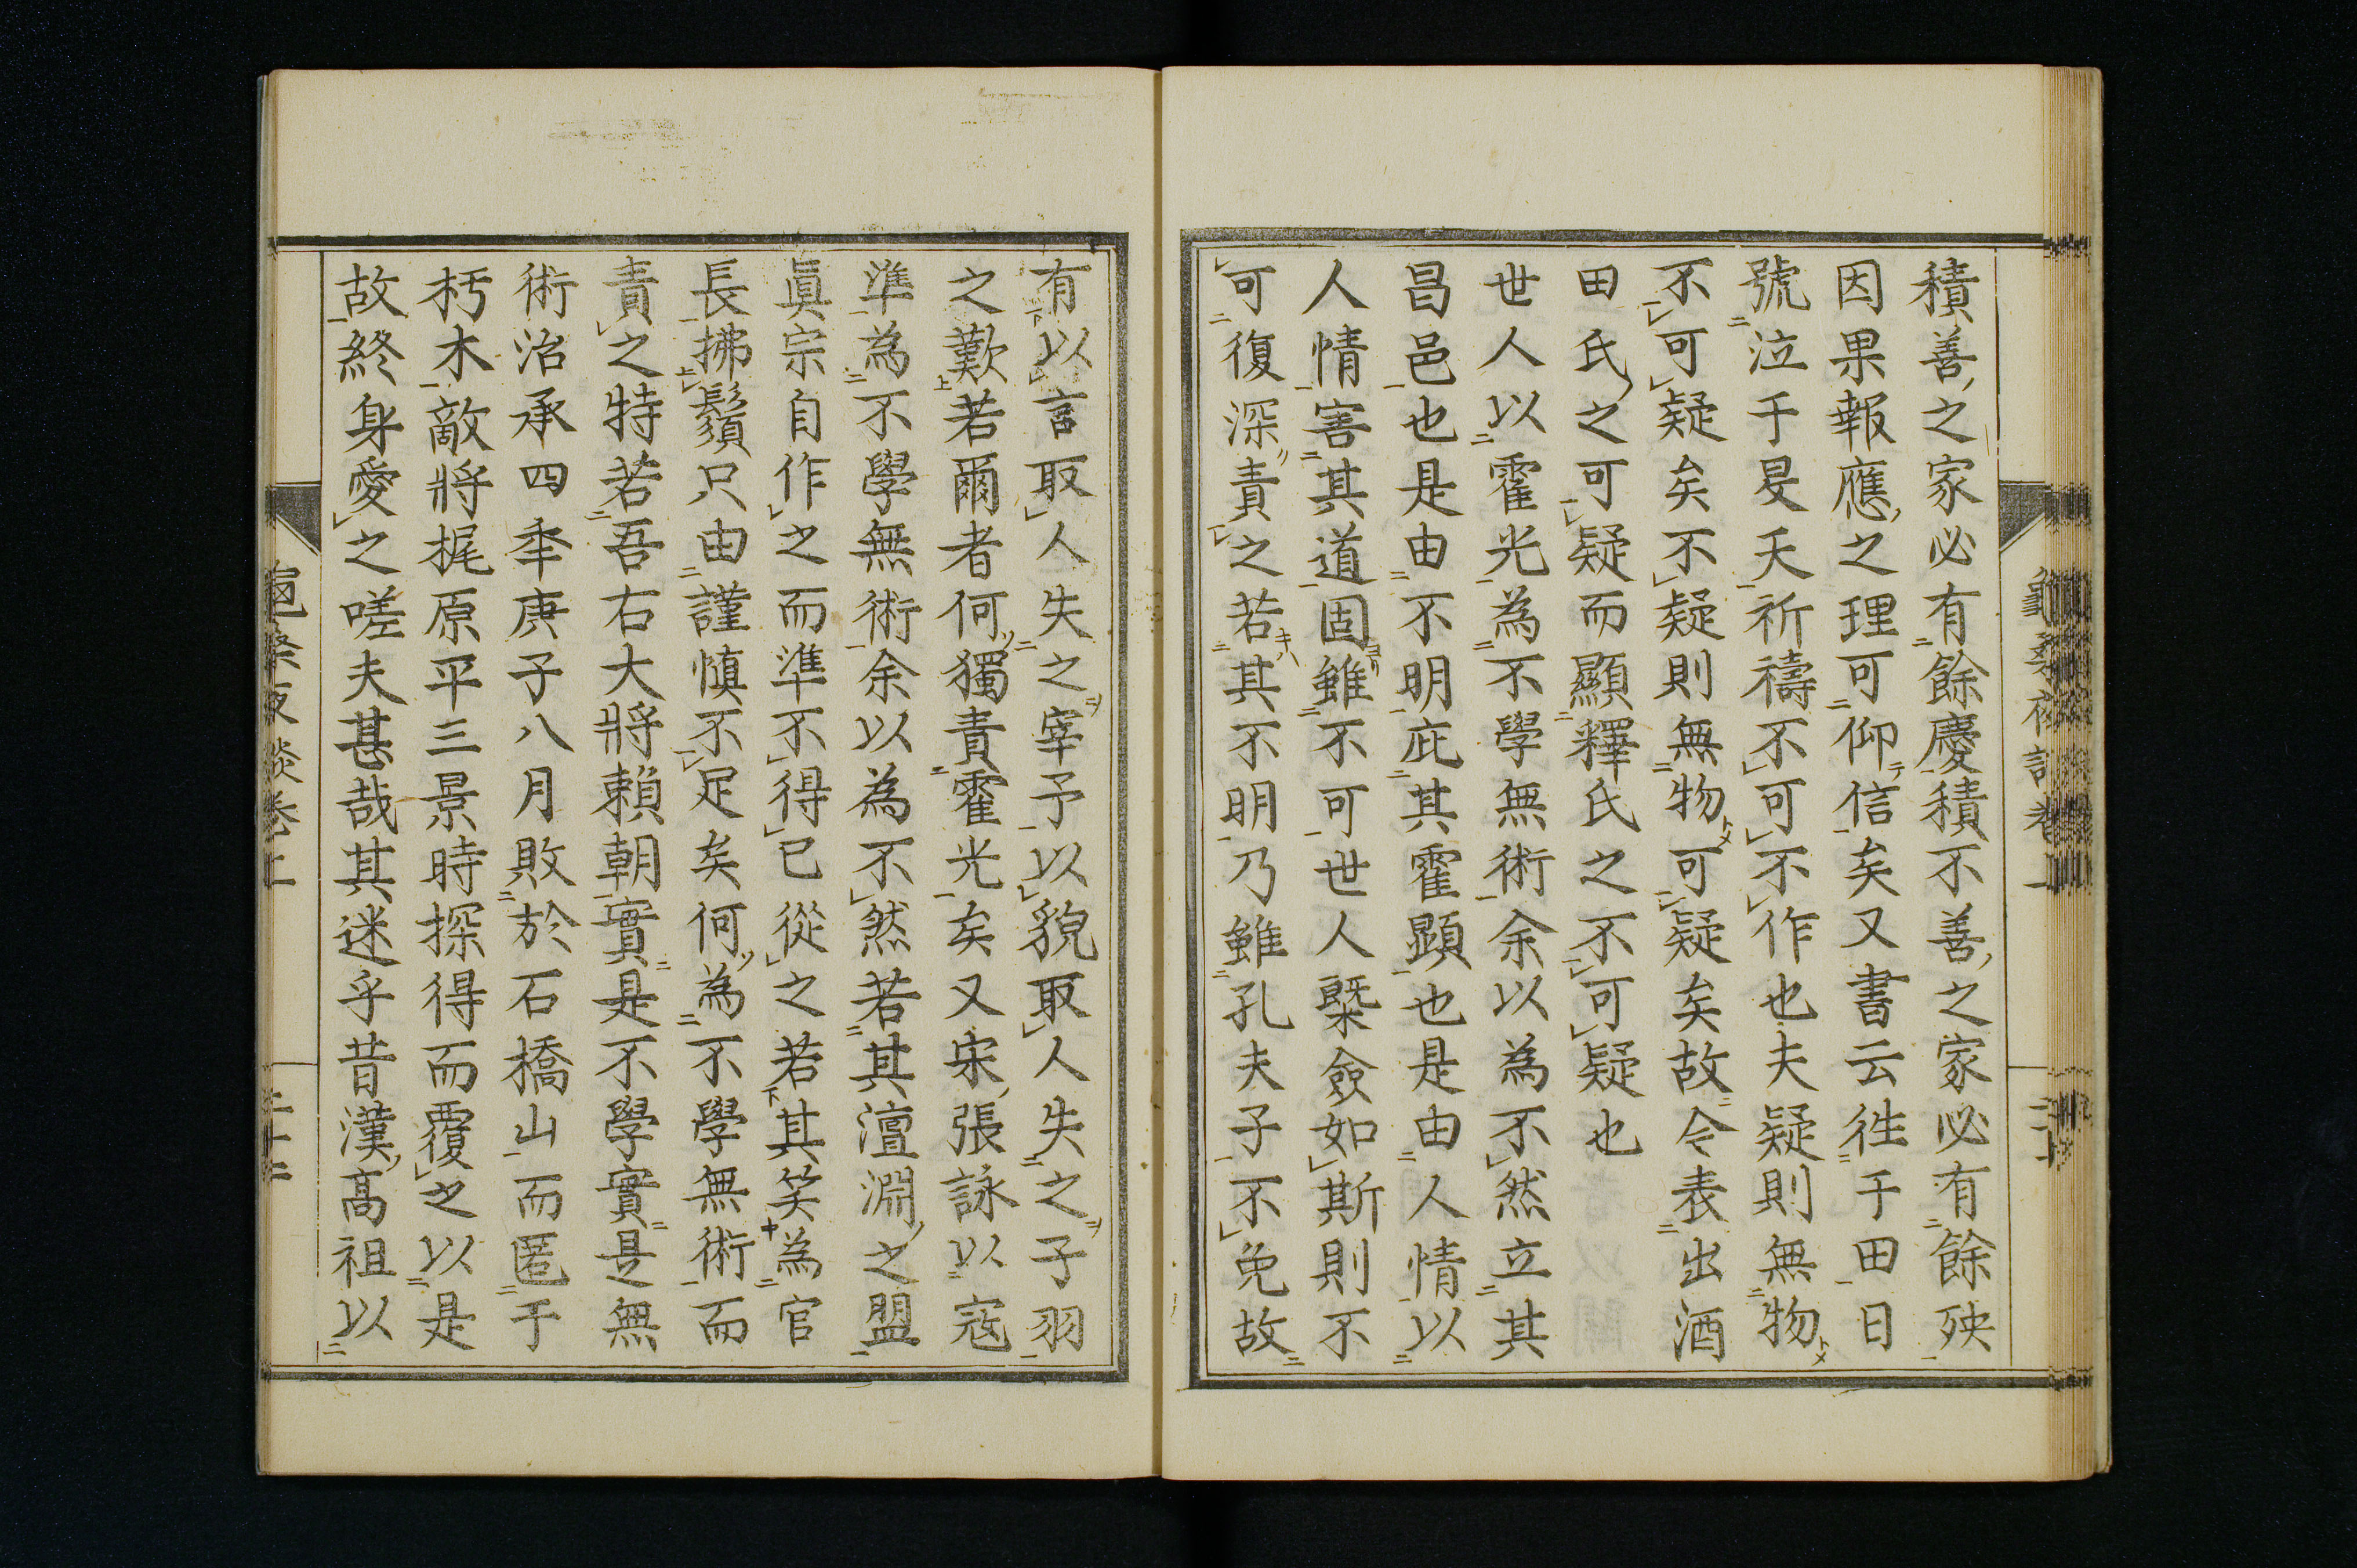 積善之家必有餘慶積不善之家必有餘殃
因果報應之理可仰信矣又書云徃于田日
號泣于旻天祈禱不可不作也夫疑則無物
不可疑矣不疑則無物可疑矣故令表出酒
田氏之可疑而顯釋氏之不可疑也
世人以霍光為不學無術余以為不然立其
昌邑也是由不明庇其霍顕也是由人情以
人情害其道固雖不可世人槩僉如斯則不
可復深責之若其不明乃雖孔夫子不免故
有以言取人失之宰予以貌取人失之子羽
之歎若爾者何獨責霍光矣又宋張詠以寇
準為不學無術余以為不然若其澶淵之盟
眞宗自作之而準不得已從之若其笑為官
長拂鬚只由謹慎不足矣何為不學無術而
責之特若吾右大將賴朝實是不學實是無
術治承四秊庚子八月敗於石橋山而匿于
朽木敵將梶原平三景時探得而覆之以是
故終身愛之嗟夫甚哉其迷乎昔漢高祖以